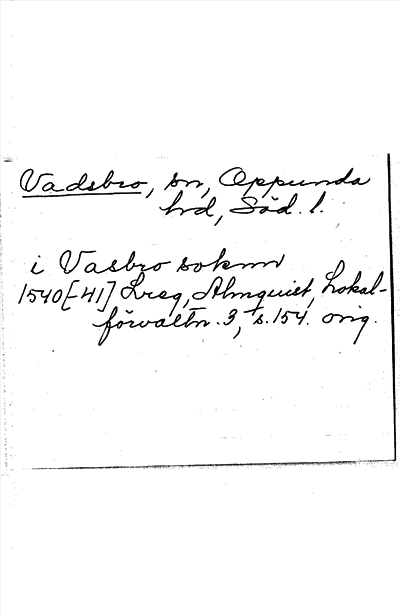 Vadsbro, sn, Oppunda
hd, Söd. l.
i Vasbro soknn
1540[-41] Lreg, Almquist, Lokal-
förvaltn. 3, s. 154. orig.